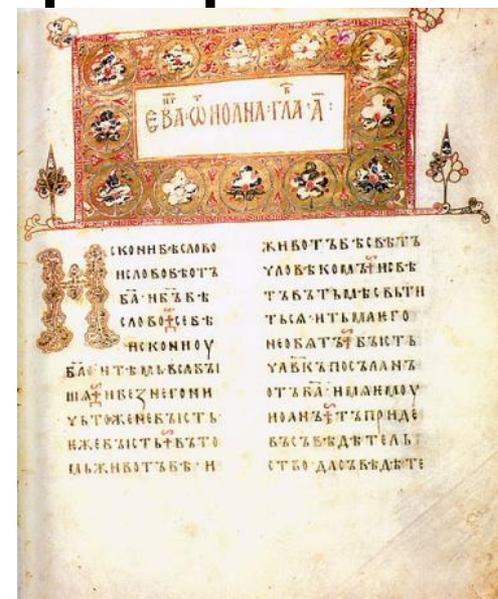 ЕВА·Ѿ ИОАНА·ГЛА·А҃:
ИСКОНИ БѢ СЛОВО
И СЛОВО БѢ ОТЪ
Б҃А· И Б҃Ъ БѢ
СЛОВО СЕ БѢ
ИСКОНИ ОУ
Б҃А И ТѢМЬ ВЬСА БЫ
ША И БЕЗ НЕГО НИ
ЧЬТОЖЕ НЕ БЫСТЬ·
ЕЖЕ БЫСТЬ ВЪ ТО
МЬ ЖИВОТЪ БѢ· И
ЖИВОТЪ БѢ СВѢТЪ
ЧЛОВѢКОМЪ И СВѢ
ТЪ ВЪ ТЬМѢ СВЬТИ
ТЬСЯ· И ТЬМА ЕГО
НЕ ОБЯТЪ БЫСТЬ
ЧЛ҃ВКЪ ПОСЪЛАНЪ
ОТЪ Б҃А· ИМЯ ЕМОУ
ИОАНЪ ТЪ ПРИДЕ
ВЪ СЪВѢДѢТЕЛЬ
СТВО ДА СЪВѢДѢТЕ